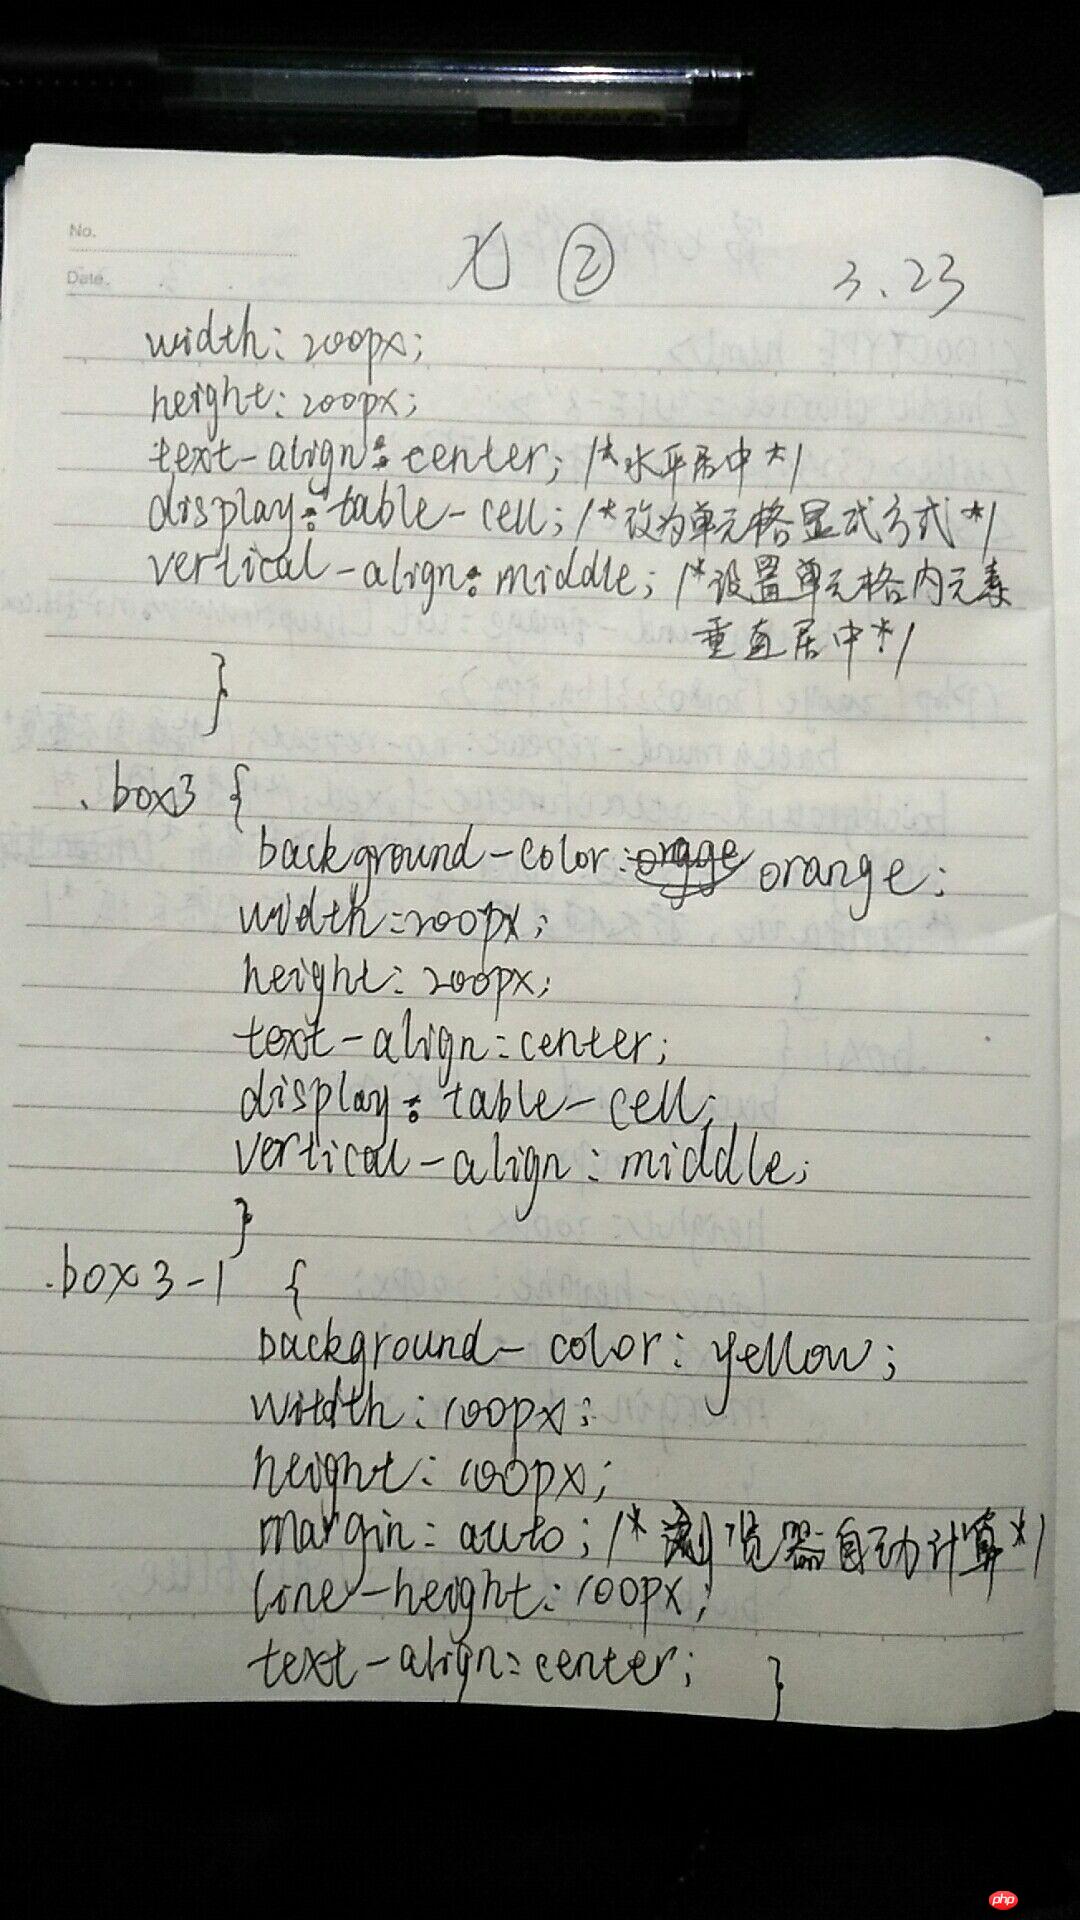 No.
Date.
② 3.23
width: 200px;
height: 200px;
text-align: center; /*水平居中*/
display: table-cell; /*改为单元格显式方式*/
vertical-align: middle; /*设置单元格内元素
垂直居中*/
}
.box3 {
background-color: orange;
width: 200px;
height: 200px;
text-align: center;
display: table-cell;
vertical-align: middle;
}
.box3-1 {
background-color: yellow;
width: 100px;
height: 100px;
margin: auto; /*浏览器自动计算*/
line-height: 100px;
text-align: center; }
php